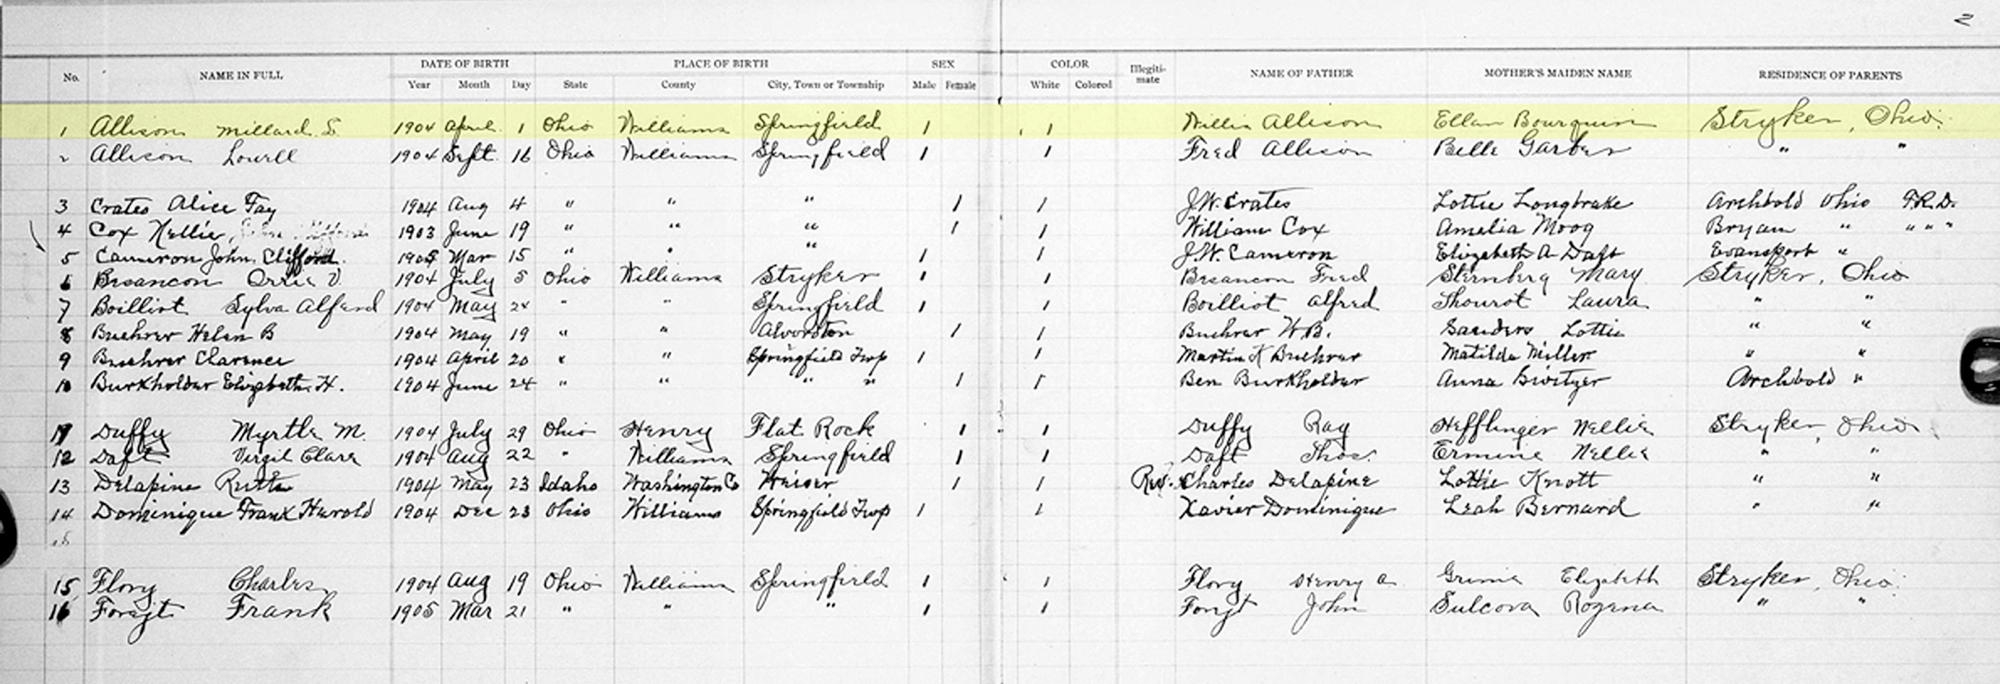 2
No. NAME IN FULL DATE OF BIRTH PLACE OF BIRTH SEX COLOR Illegiti-mate NAME OF FATHER MOTHER'S MAIDEN NAME RESIDENCE OF PARENTS
Year Month Day State County City, Town or Township Male Female White Colored
1 Allison Millard S. 1904 April 1 Ohio Williams Springfield 1 1 Willis Allison Ellen Bourquin Stryker, Ohio.
2 Allison Lowell 1904 Sept. 16 Ohio Williams Springfield 1 1 Fred Allison Belle Garber " "
3 Crates Alice Fay 1904 Aug 4 " " " 1 1 J.W. Crates Lottie Longbrake Archbold Ohio F.R.D.
4 Cox Nellie 1903 June 19 " " " 1 1 William Cox Amelia Moog Bryan " " " "
5 Cameron John Clifford. 1905 Mar 15 " " " 1 1 J.W. Cameron Elizabeth A Daft Evansport "
6 Besancon Orrie V 1904 July 5 Ohio Williams Stryker 1 1 Besancon Fred Sternberg Mary Stryker, Ohio
7 Boilliot Sylva Alferd 1904 May 24 " " Springfield 1 1 Boilliot Alfred Thourot Laura " "
8 Buehrer Helen B 1904 May 19 " " Alvordton 1 1 Buehrer W.B. Saunders Lottie " "
9 Buehrer Clarence 1904 April 20 " " Springfield Twp 1 1 Martin K Buehrer Matilda Miller " "
10 Burkholder Elizabeth H. 1904 June 24 " " " " 1 1 Ben Burkholder Anna Archbold "
Duffy Myrtle M. 1904 July 29 Ohio Henry Flat Rock 1 1 Duffy Ray Hefflinger Nellie Stryker, Ohio
12 Daft Virgil Clare 1904 Aug 22 " Williams Springfield 1 1 Daft Thos. Ermine Nellie " "
13 Delapine Rutta 1904 May 23 Idaho Washington Co Weiser 1 1 Rev. Charles Delapine Lottie Knott " "
14 Dominique Frank Harold 1904 Dec 23 Ohio Williams Springfield Twp 1 1 Xavier Dominique Leah Bernard " "
15
15 Flory Charles 1904 Aug 19 Ohio Williams Springfield 1 1 Flory Henry A Grime Elizabeth Stryker, Ohio.
16 Forejt Frank 1905 Mar 21 " " " 1 1 Forejt John Sulcova Rozena " "